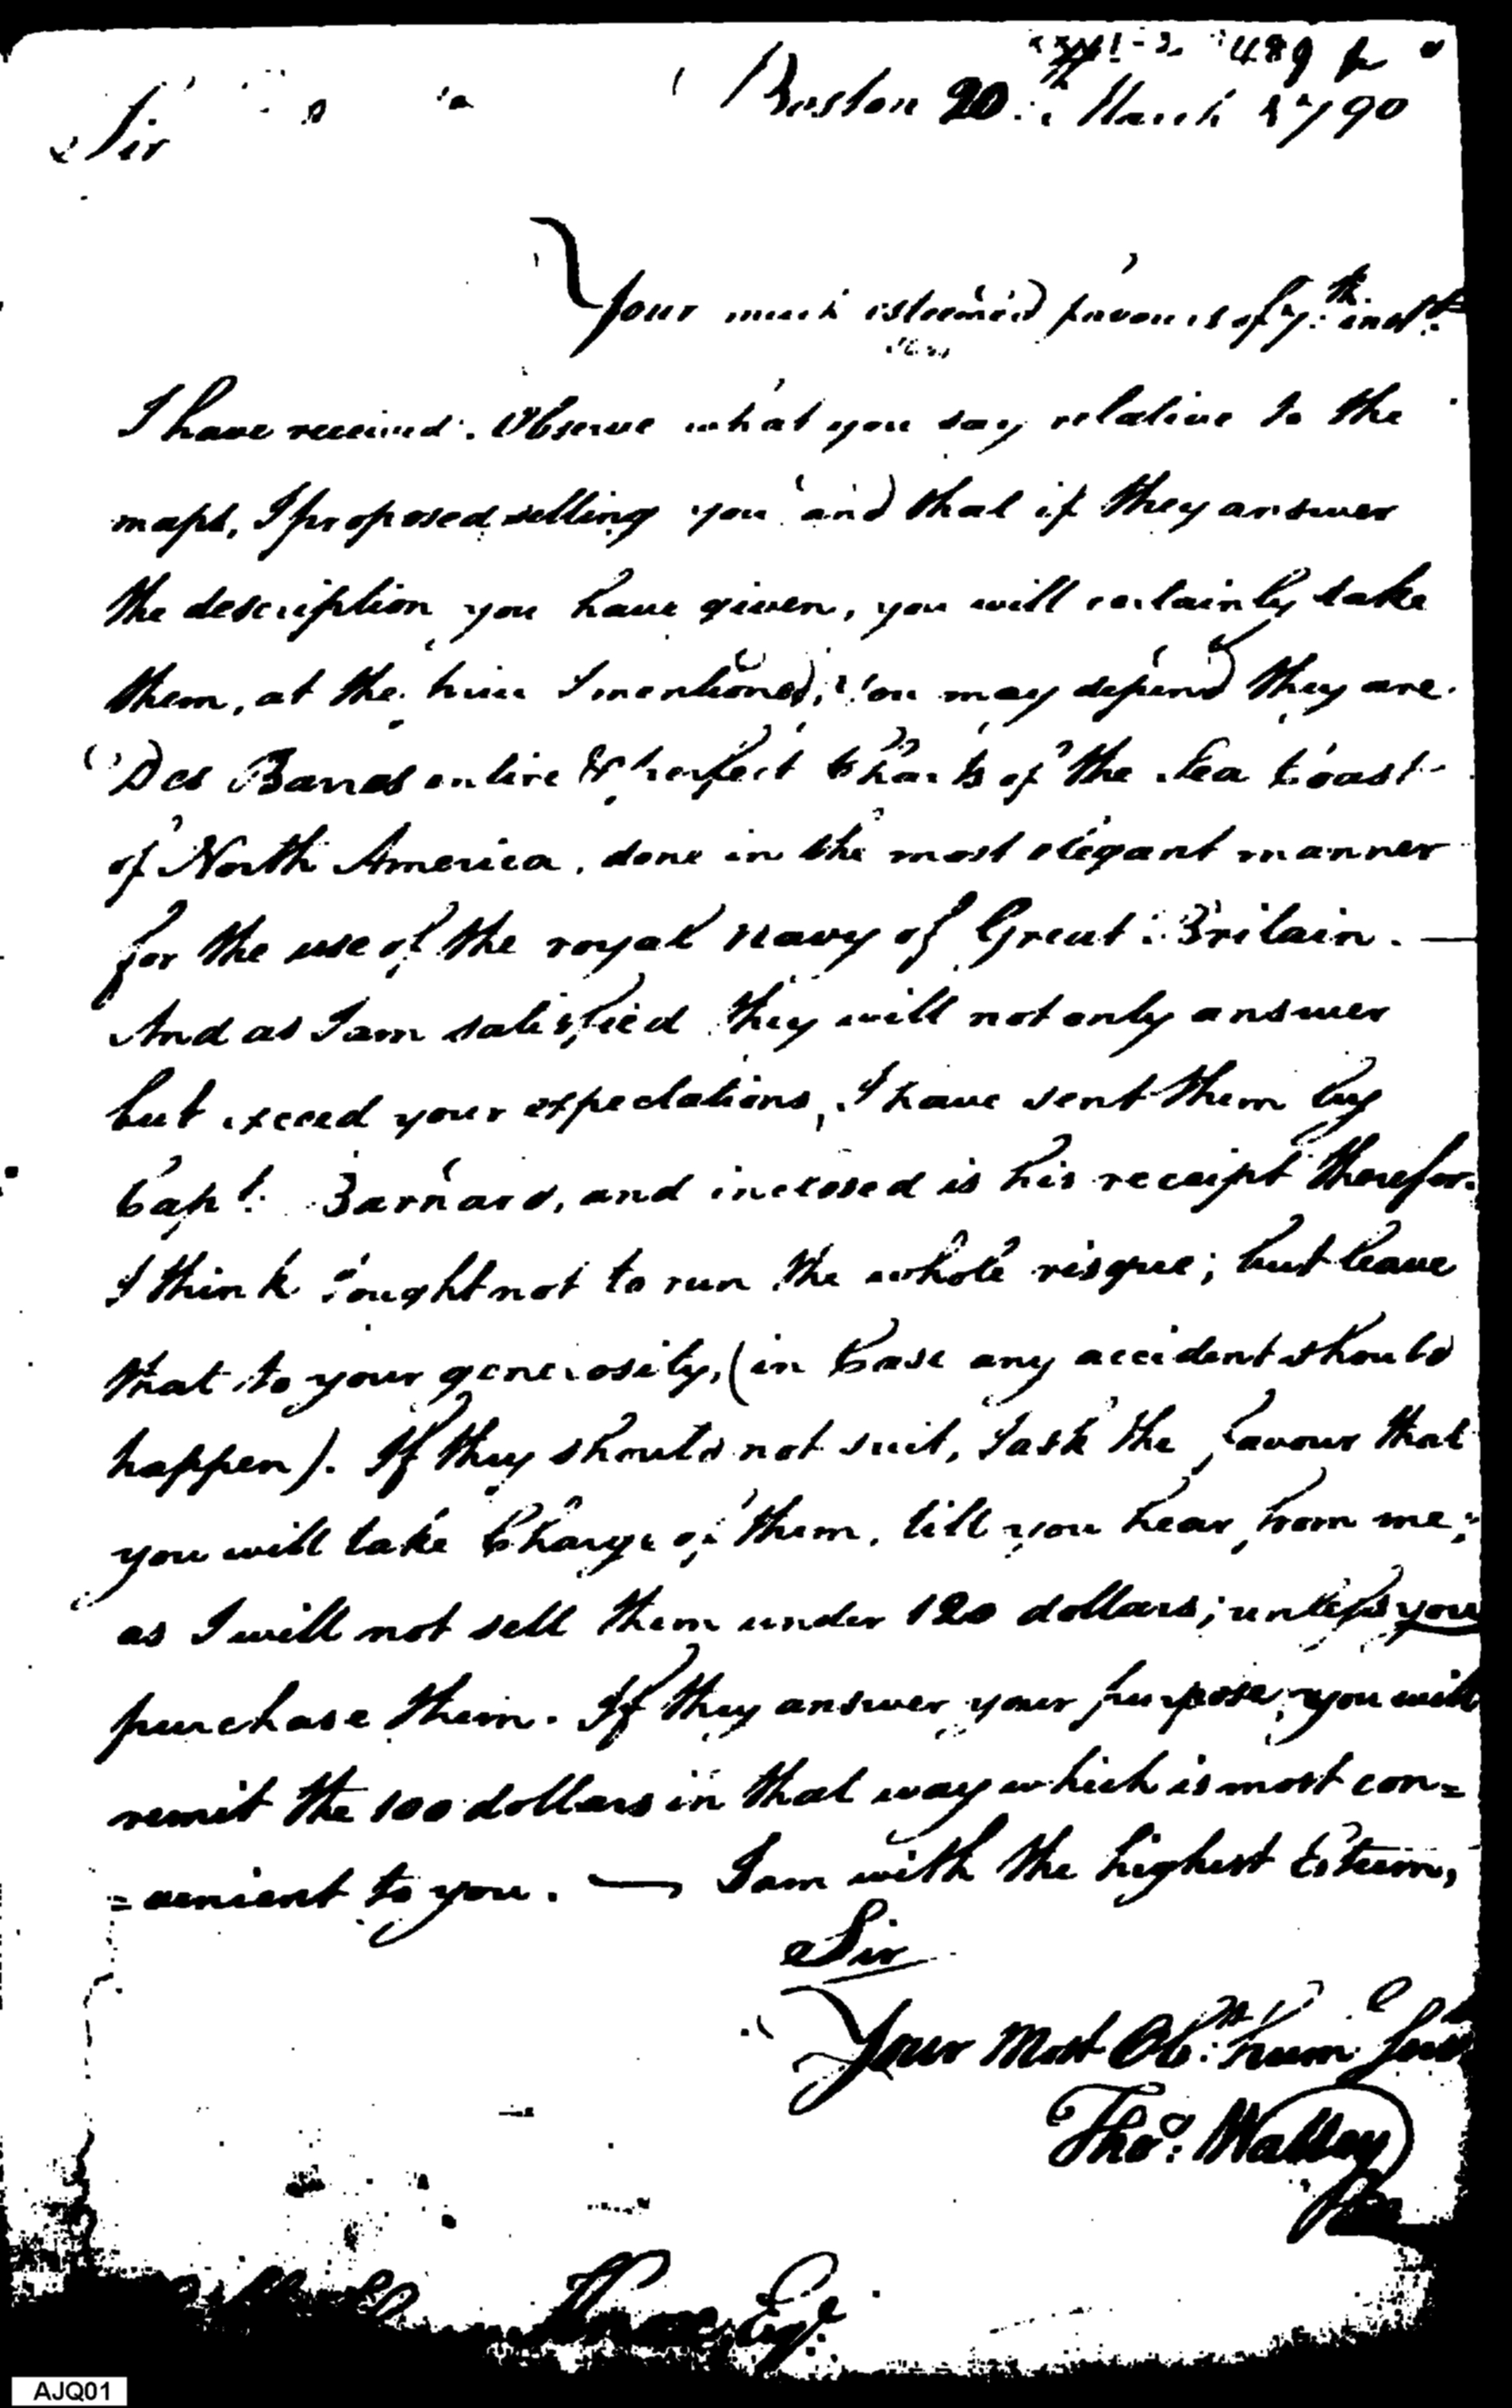 489
Boston 20th March 1790
Sir
Your much esteem'd favours of 7th inst.
I have received. Observe what you say relative to the
maps, I proposed selling you and that if they answer
the description you have given, you will certainly take
them, at the price I mentioned; You may depend they are
Des Barres entire & perfect Charts of the Sea Coast
of North America, done in the most elegant manner
for the use of the royal navy of Great Britain. —
And as I am satisfied they will not only answer
but exceed your expectations, I have sent them by
Capt. Barnard, and inclosed is his receipt therefor.
I think I ought not to run the whole risque; but leave
that to your generosity, (in Case any accident should
happen). If they should not suit, I ask the favour that
you will take Charge of them, till you hear from me;
as I will not sell them under 120 dollars; unless you
purchase them. If they answer your purpose, you will
remit the 100 dollars in that way which is most con=
=venient to you. — I am with the highest Esteem,
Sir
Your Most Obt. hume Serv
Thos. Walley
Knox Esqr.
AJQ01